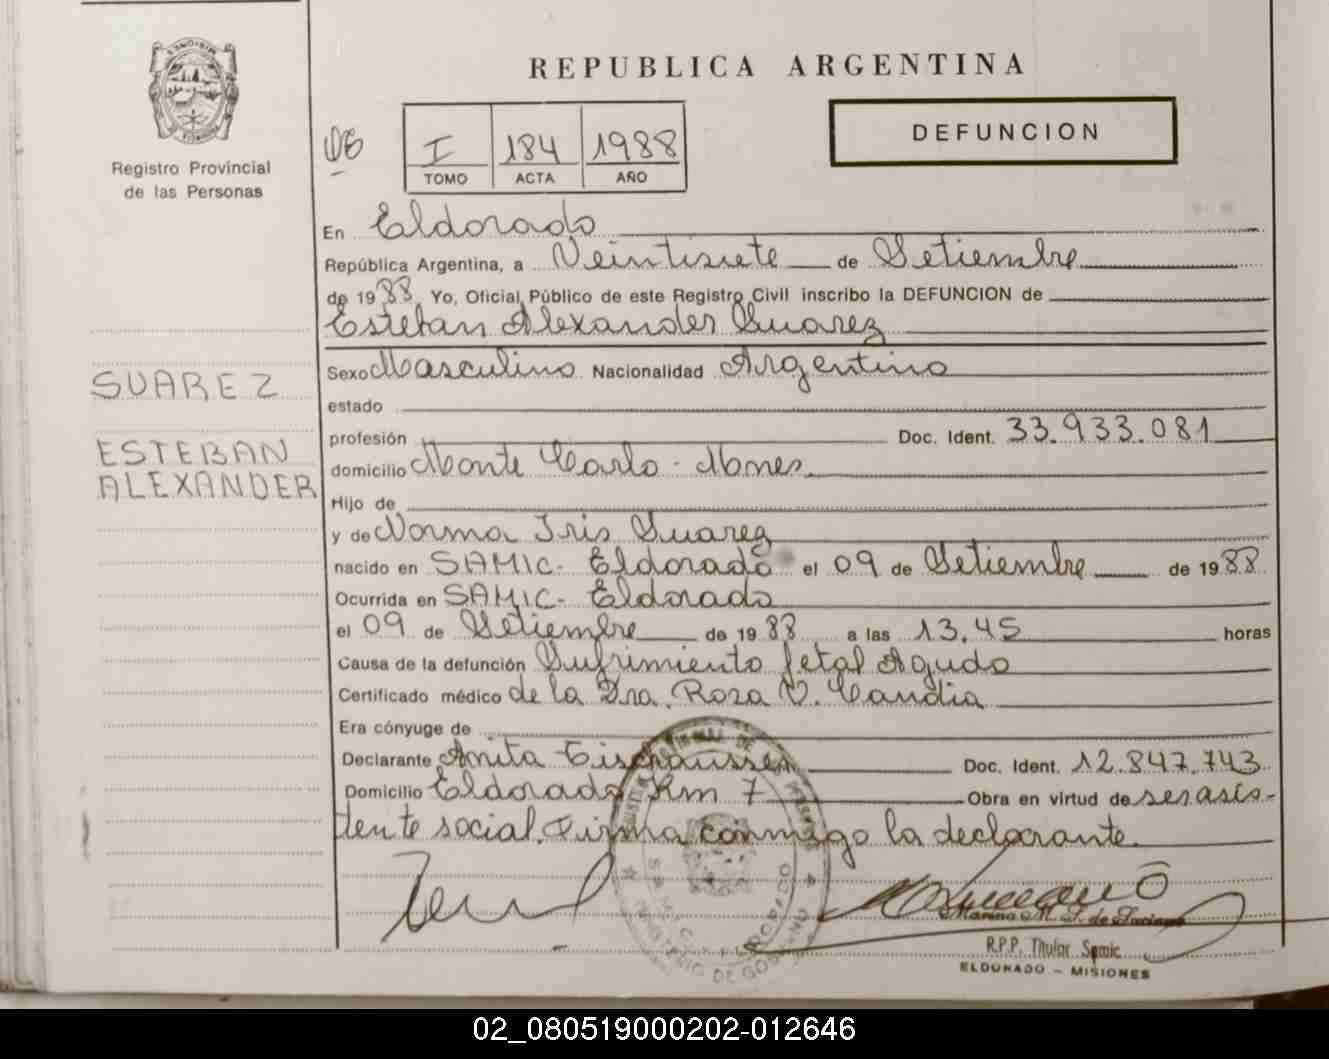 REPUBLICA ARGENTINA
Registro Provincial
de las Personas
I 184 1988
TOMO ACTA AÑO
DEFUNCION
En Eldorado
República Argentina, a Veintisiete de Setiembre
de 1988 Yo, Oficial Público de este Registro Civil inscribo la DEFUNCION de
Esteban Alexander Suarez
SUAREZ
ESTEBAN
ALEXANDER
Sexo Masculino Nacionalidad Argentino
estado
profesión Doc. Ident. 33.933.081
domicilio Monte Carlo - Mnes.
Hijo de
y de Norma Iris Suarez
nacido en SAMIC- Eldorado el 09 de Setiembre de 1988
Ocurrida en SAMIC- Eldorado
el 09 de Setiembre de 1988 a las 13.45 horas
Causa de la defunción Sufrimiento fetal Agudo
Certificado médico de la Dra. Rosa V. Candia
Era cónyuge de
Declarante Anita Doc. Ident. 12.847.743
Domicilio Eldorado Km 7 Obra en virtud de ser asis-
tente social. Firma conmigo la declarante.
Marina M. S. de
R.P.P. Titular Samic
ELDORADO - MISIONES
02_080519000202-012646